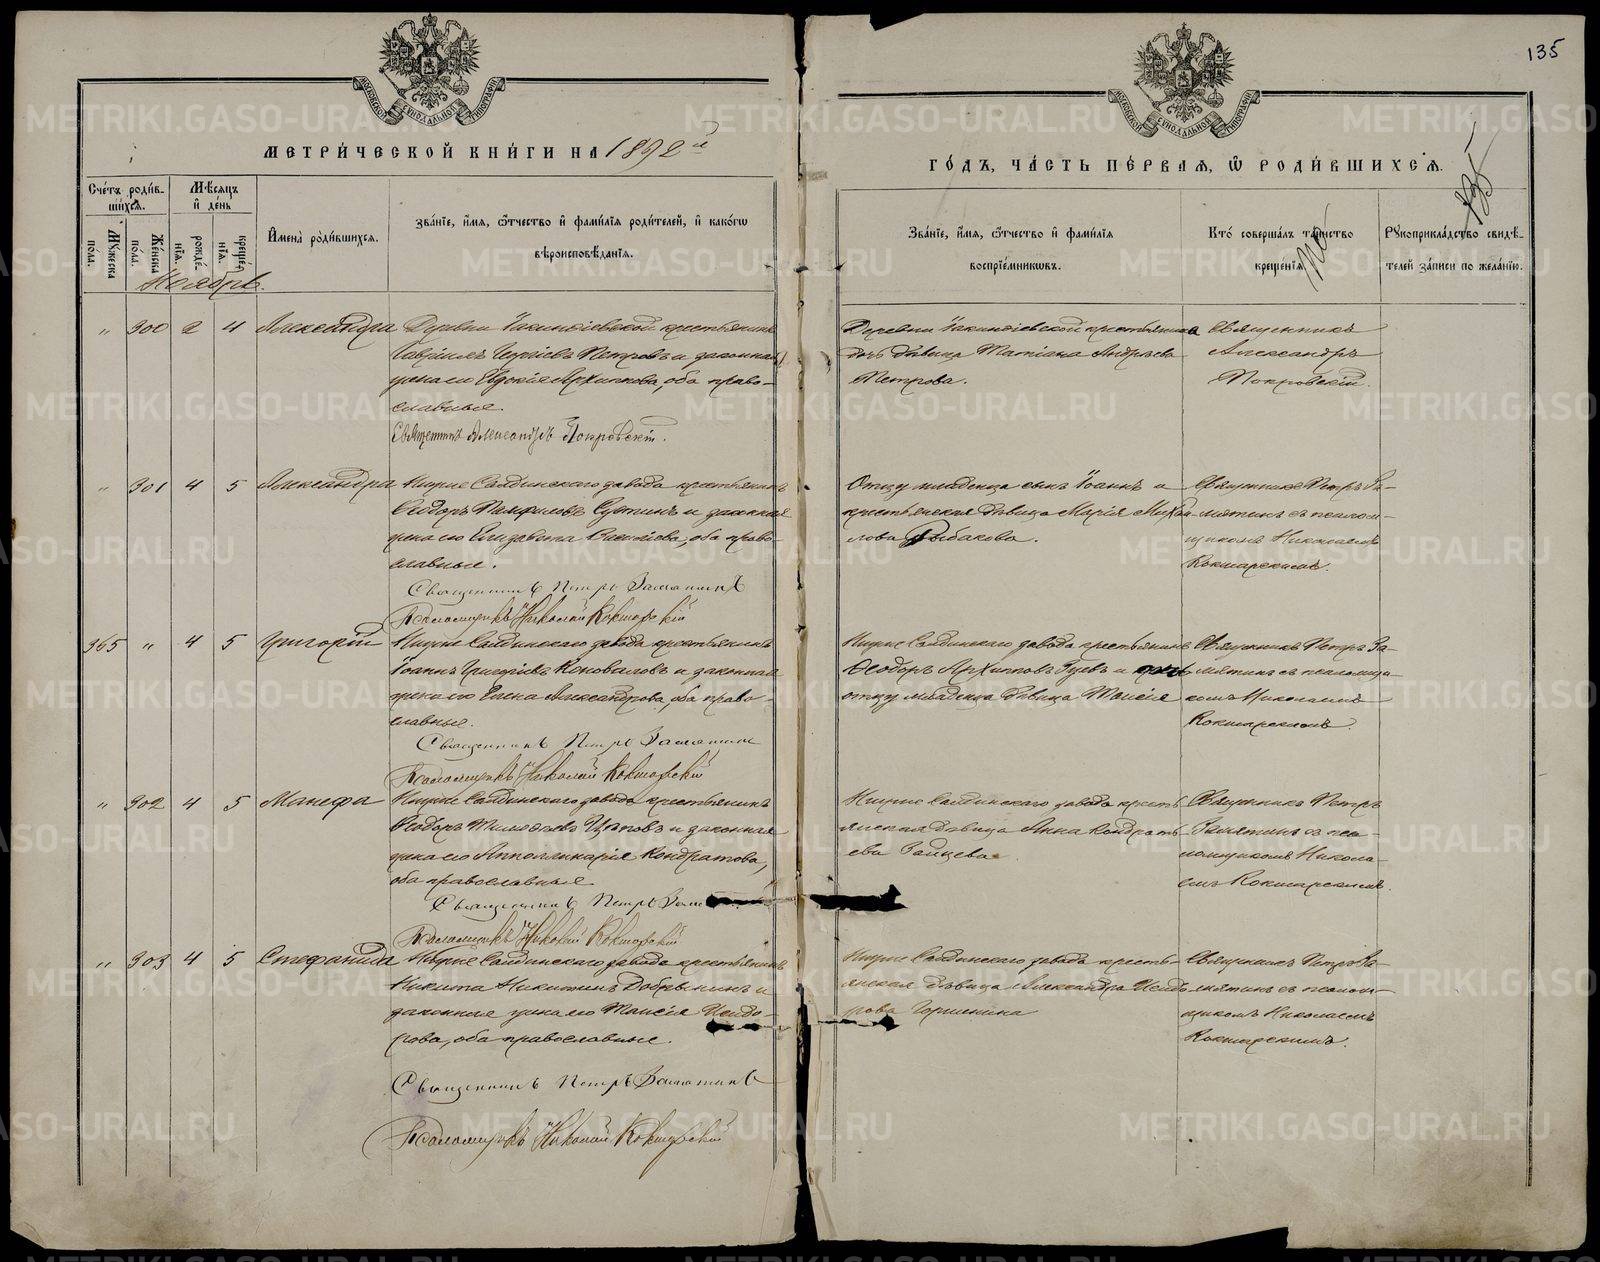 135
МЕТРИ́ЧЕСКОЙ КНИ́ГИ НА 1892й
ГО́ДЪ, ЧА́СТЬ ПЕ́РВАЯ, Ѿ РОДИ́ВШИХСЯ.
Сче́тъ роди́в-
ши́хся.
Му́жеска
пола.
Же́нска
по́ла.
Мѣ́сяцъ
и́ де́нь
рожде́-
нїя.
креще́-
нїя.
И́мена̀ роди́вшихся.
Зва́нїе, и́мя, ѻ́тчество и́ фами́лїя роди́телей, и́ како́гѡ
вѣроисповѣ́данїя.
Зва́нїе, и́мя, ѻ́тчество и́ фами́лїя
воспрїе́мникѡвъ.
Кто̀ соверша́лъ та́инство
креще́нїя
Рꙋкоприкла́дство свидѣ́-
телей за́писи по жела́нїю.
Ноябрь.
„ 300 2 4 Александра
Деревни крестьянинъ
Гавріилъ Георгіевъ Петровъ и законная
жена его Евдокія Архипова, оба право-
славные.
Священникъ Александръ Покровскій.
Деревни крестьянина
дочь дѣвица Татіана Андреева
Петрова.
Священникъ
Александръ
Покровскій.
„ 301 4 5 Александра
Нижне Салдинскаго завода крестьянинъ
Ѳеодоръ Памфиловъ и законная
жена его Елизавета Васильева, оба право-
славные.
Священникъ Петръ Замятинъ
Псаломщикъ Николай Кокшарскій
Отцу младенца сынъ Іоаннъ и
крестьянская дѣвица Марія Михаи-
лова Рыбакова.
Священникъ Петръ За-
мятинъ съ псалом-
щикомъ Николаемъ
Кокшарскимъ.
365 „ 4 5 Григорій
Нижне Салдинскаго завода крестьянинъ
Іоаннъ Григоріевъ Коноваловъ и законная
жена его Елена Александрова, оба право-
славные.
Священникъ Петръ Замятинъ
Псаломщикъ Николай Кокшарскій
Нижне Салдинскаго завода крестьянинъ
Ѳеодоръ Архиповъ Гуевъ и дочь
отцу младенца дѣвица Таисія
Священникъ Петръ За-
мятинъ съ псаломщи-
комъ Николаемъ
Кокшарскимъ.
„ 302 4 5 Манефа
Нижне Салдинскаго завода крестьянинъ
Ѳеодоръ Тимоѳеевъ и законная
жена его Апполлинарія Кондратова,
оба православные
Священникъ Петръ Зам
Псаломщикъ Николай Кокшарскій
Нижне Салдинскаго завода кресть-
янская дѣвица Анна Кондрать-
ева Зайцева.
Священникъ Петръ
Замятинъ съ пса-
ломщикомъ Никола-
емъ Кокшарскимъ.
„ 303 4 5 Стефанида
Нижне Салдинскаго завода крестьянинъ
Никита Никитинъ Добрынинъ и
законная жена его Таисія Исидо-
рова, оба православные.
Священникъ Петръ Замятинъ
Псаломщикъ Николай Кокшарскій
Нижне Салдинскаго завода кресть-
янская дѣвица Александра Исидо-
рова Горшенина
Священникъ Петръ За-
мятинъ съ псалом-
щикомъ Николаемъ
Кокшарскимъ.
METRIKI.GASO-URAL.RU